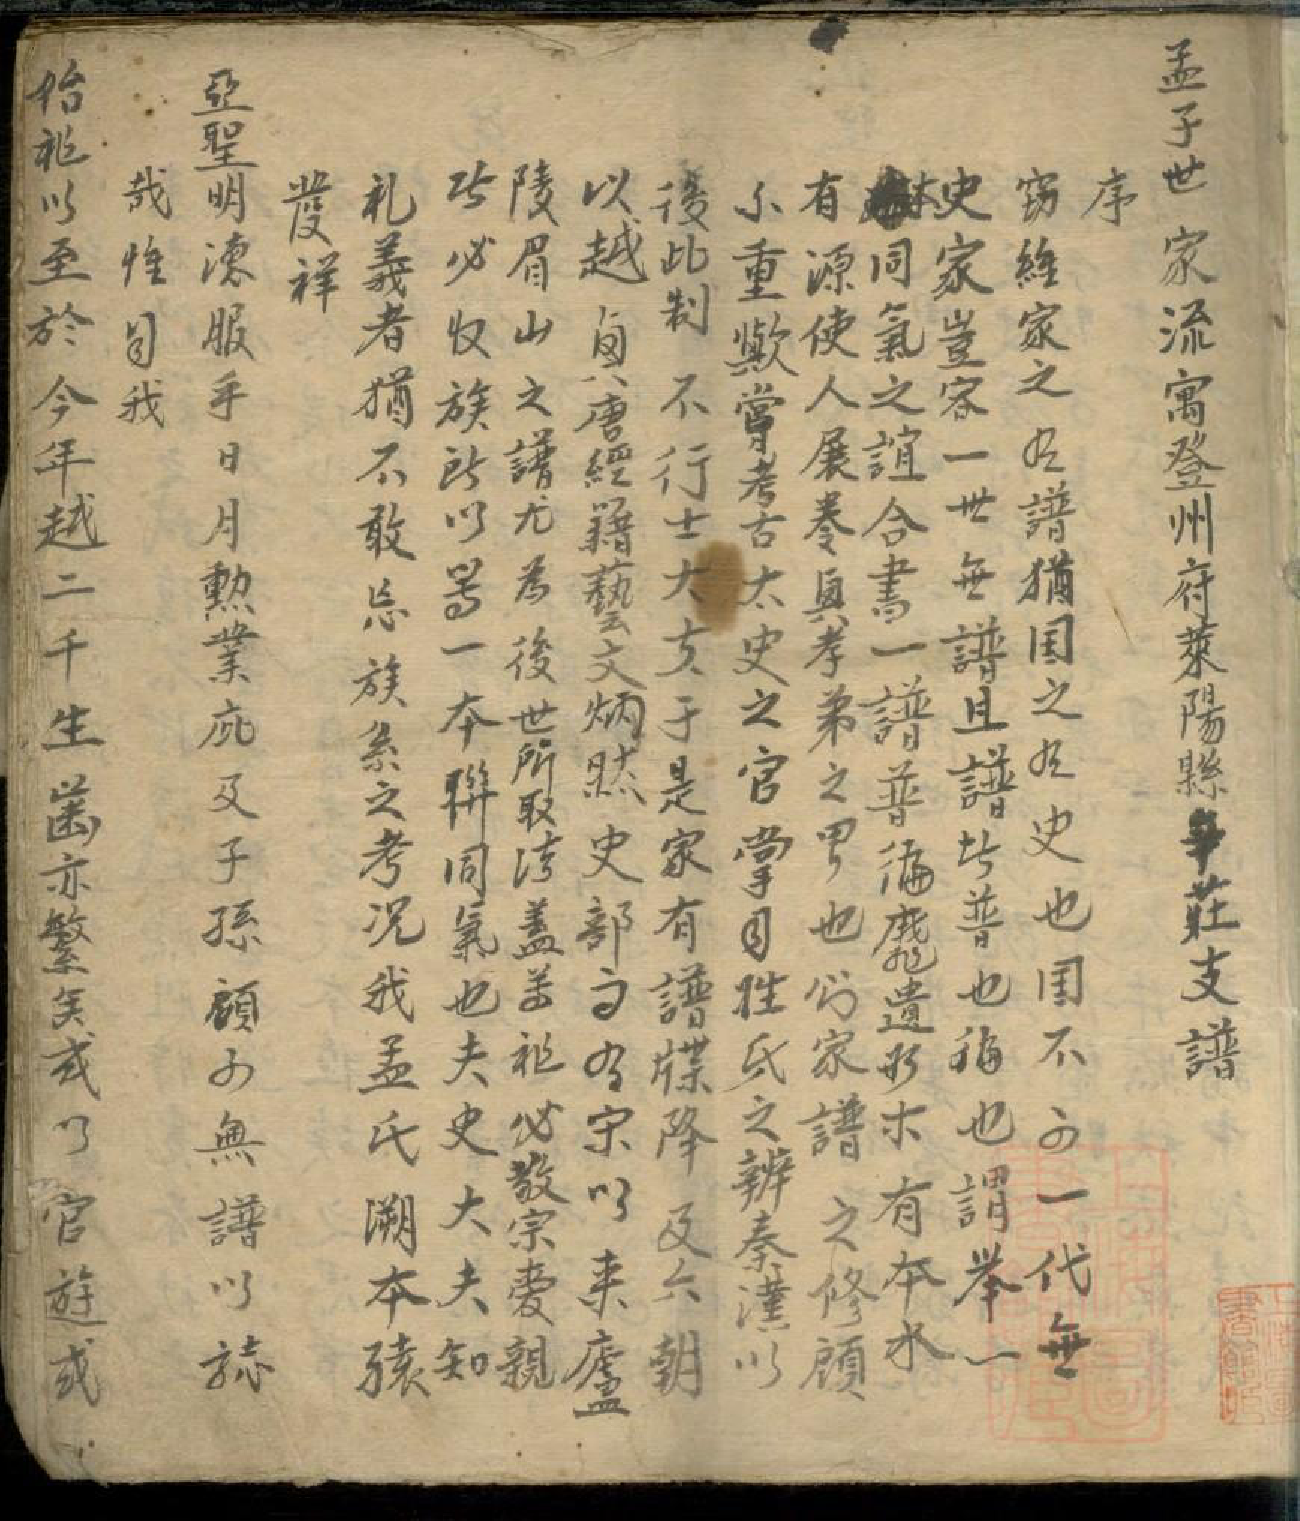 孟子世家流寓登州府萊陽縣莊支譜
序
窃維家之有譜猶国之有史也国不可一代無
史家豈容一世無譜且譜者普也稱也謂举一
同氣之誼合書一譜普徧靡遺形木有本水
有源使人展卷興孝弟之思也家譜之修顧
不重歟嘗考古太史之官掌司姓氏之辨秦漢以
後此制不行士大夫于是家有譜牒降及六朝
以越有唐經籍藝文炳然史部而有宋以来廬
陵眉山之譜尤为後世所取法蓋尊祖必敬宗愛親
者必收族所以篤一本聯同氣也夫史大夫知
礼義者猶不敢忘族系之考况我孟氏溯本
發祥
亞聖明德服乎日月勲業庇及子孫顧可無譜以誌
哉惟自我
始祖以至於今年越二千生齒亦繁矣或以官遊或